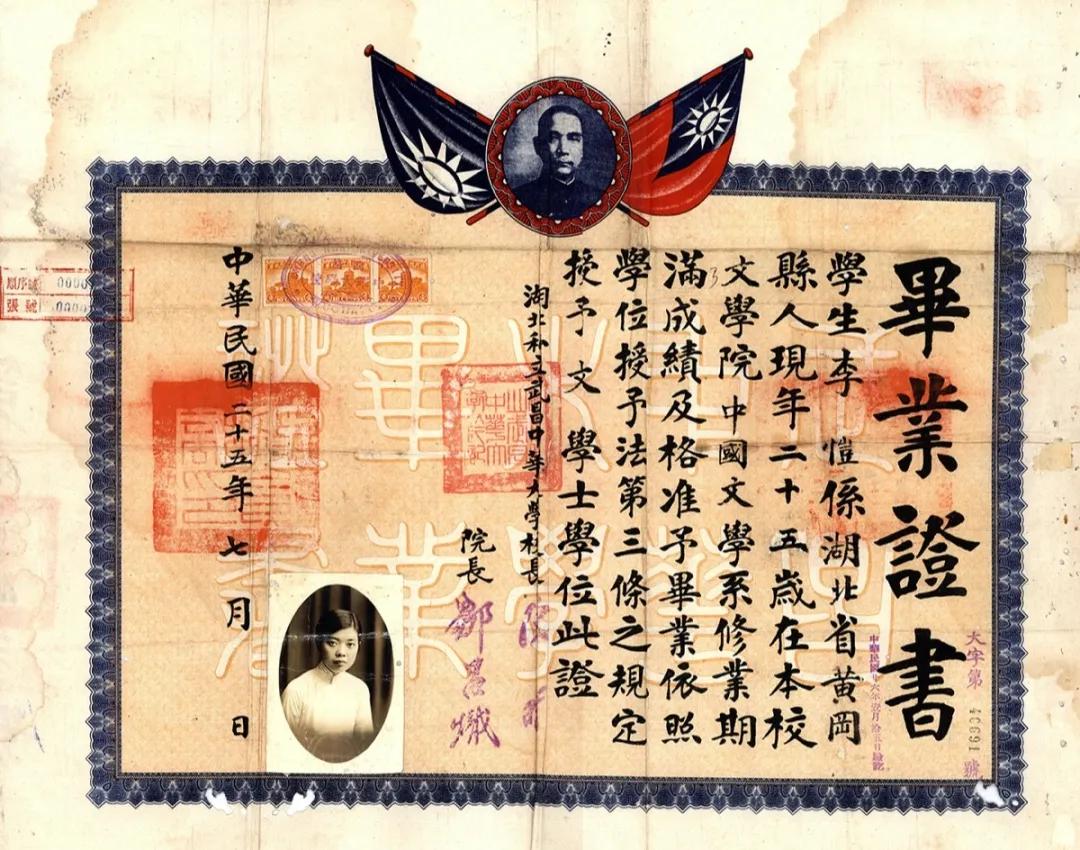 畢業證書
學生李愷係湖北省黃岡
縣人現年二十五歲在本校
文學院中國文學系修業期
滿成績及格准予畢業依照
學位授予法第三條之規定
授予文學士學位此證
湖北私立武昌中華大學校長
院長 鄒昌熾
中華民國二十五年七月 日
大字第 號
中華民國廿六年壹月拾五日驗訖
順序號 0000
張號 0000